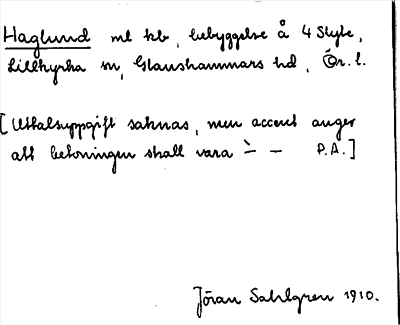 Haglund ml kb, bebyggelse å 4 Skyle,
Lillkyrka sn, Glanshammars hd, Ör. l.
[Uttalsuppgift saknas, men accent anger
att betoningen skall vara `– – P.A.]
Jöran Sahlgren 1910.